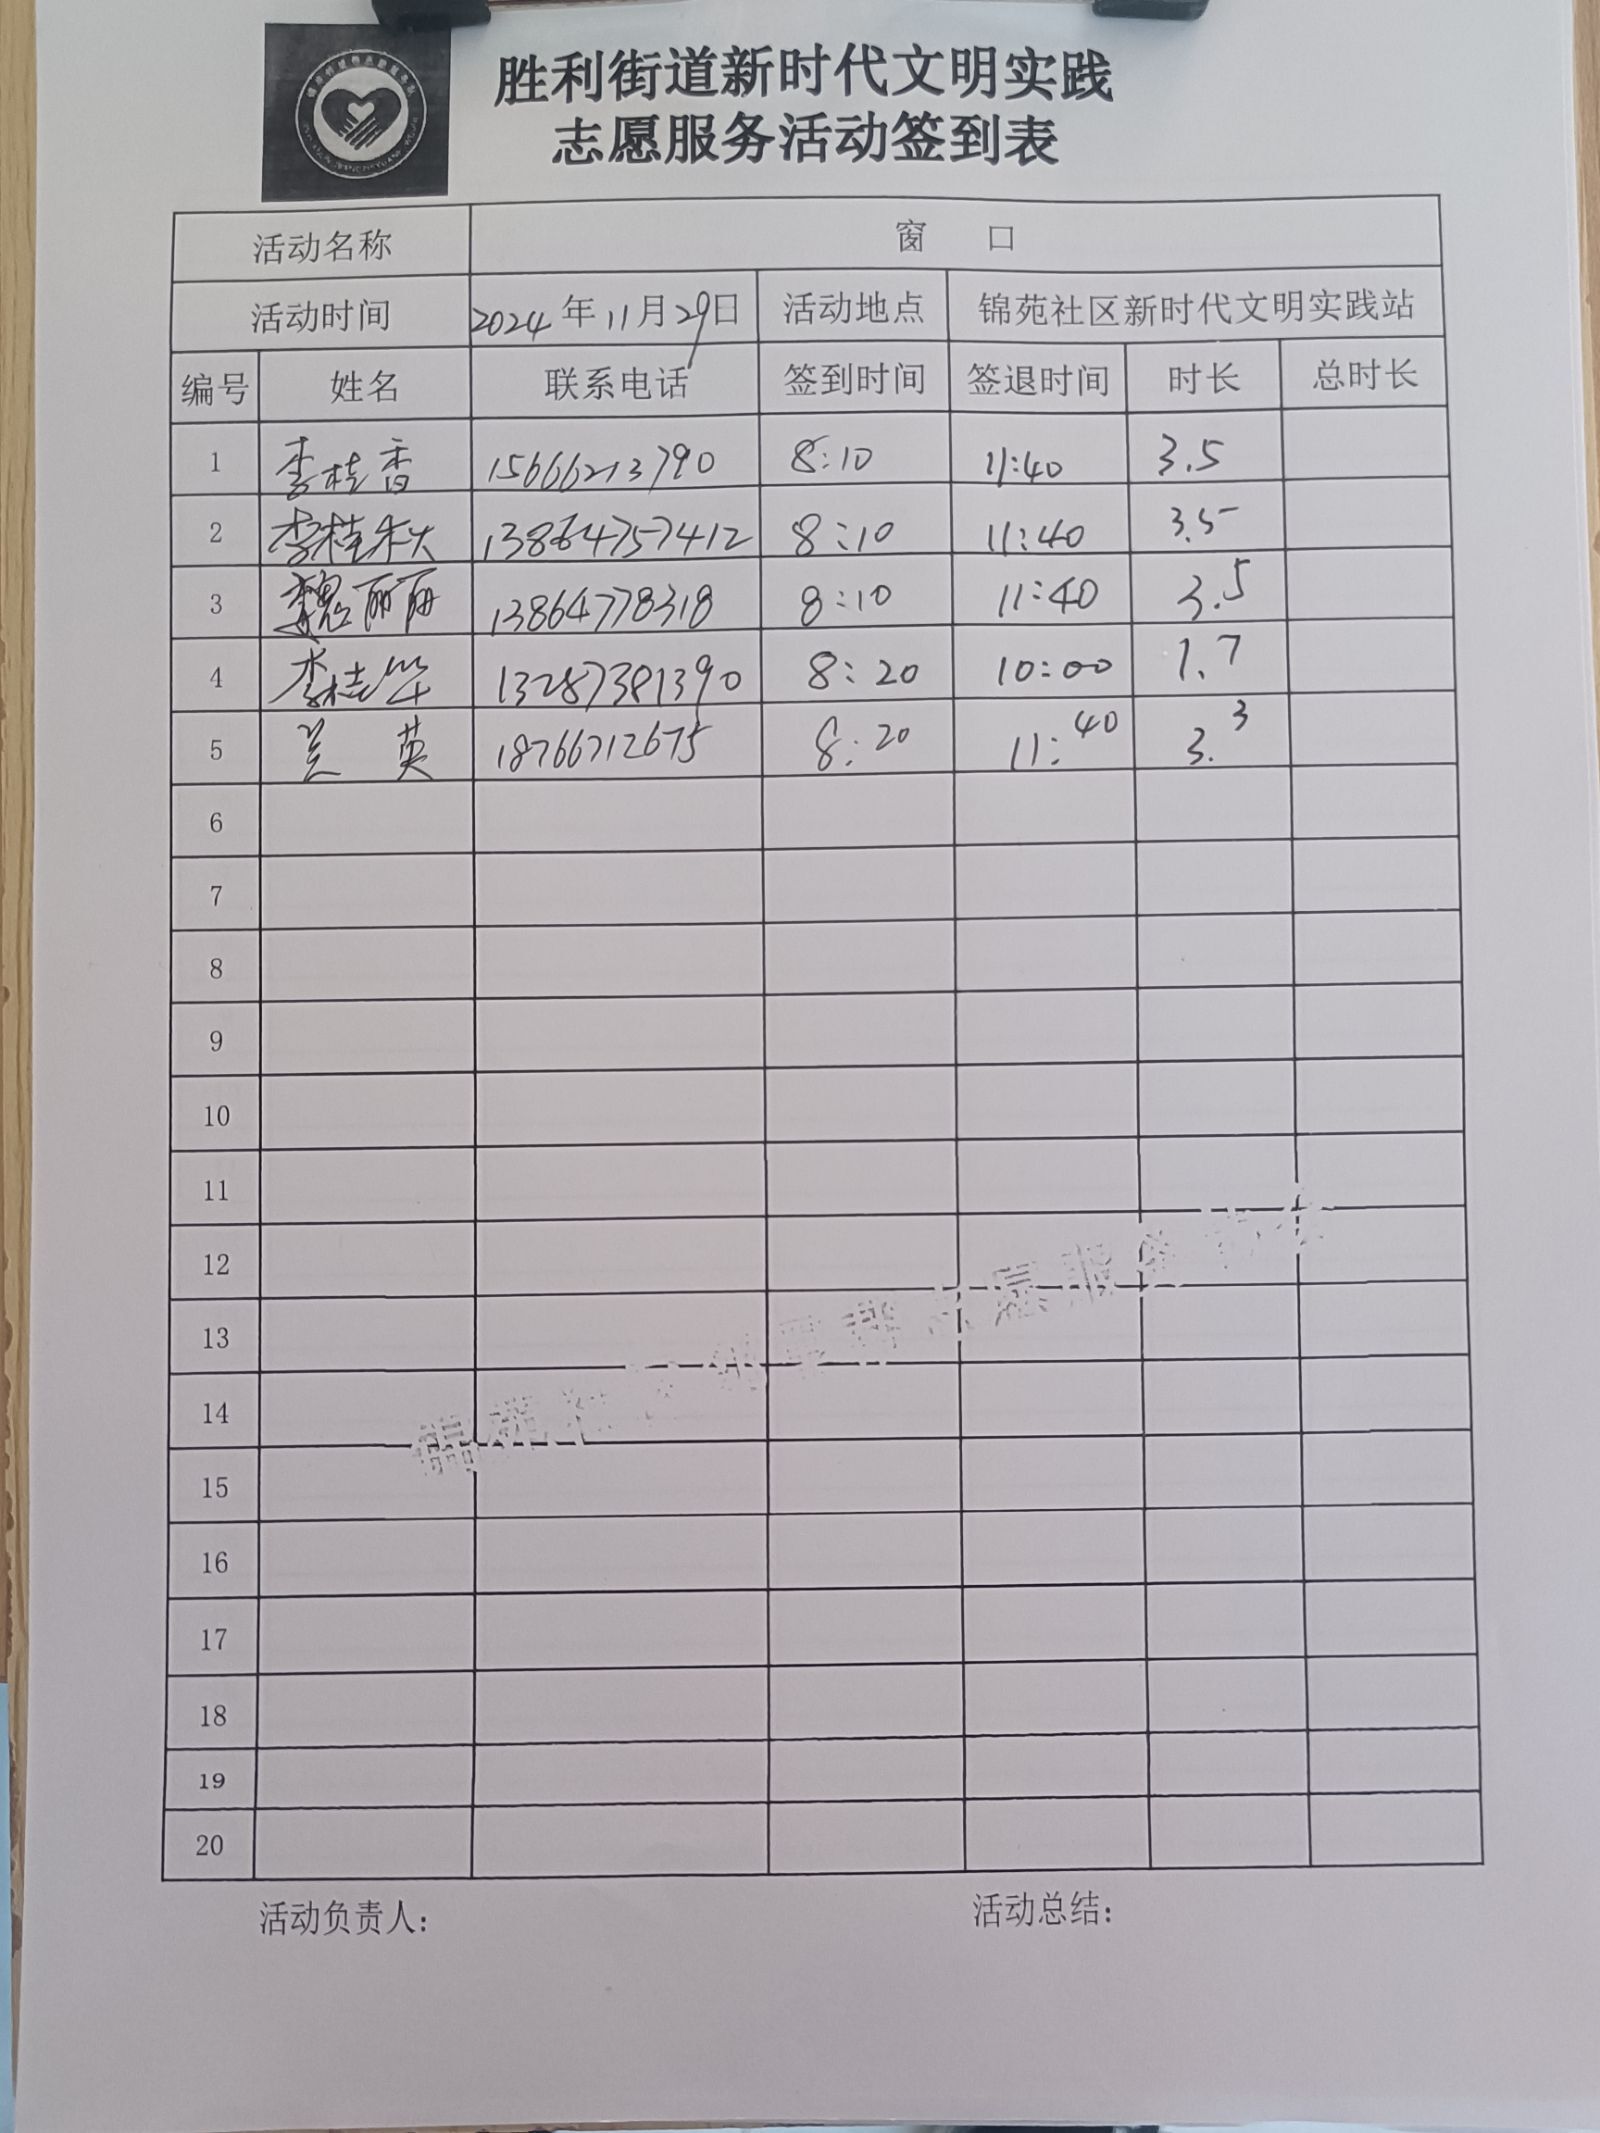 胜利街道新时代文明实践
志愿服务活动签到表
活动名称 窗 口
活动时间 2024年11月29日 活动地点 锦苑社区新时代文明实践站
编号 姓名 联系电话 签到时间 签退时间 时长 总时长
1 李桂香 15666213790 8:10 11:40 3.5
2 李桂秋 13864757412 8:10 11:40 3.5
3 魏丽丽 13864778318 8:10 11:40 3.5
4 李桂华 13287381390 8:20 10:00 1.7
5 兰 英 18766712675 8:20 11:40 3.3
6
7
8
9
10
11
12
13
14
15
16
17
18
19
20
活动负责人: 活动总结: